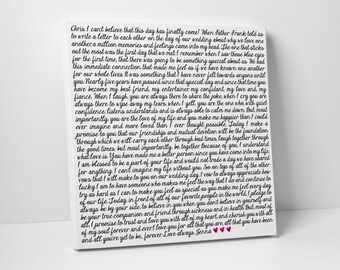 Chris, I can't believe that this day has finally come! When Father Frank told us
to write a letter to each other on the day of our wedding about why we love one
another, a million memories and feelings came into my head. The one that sticks
out the most was the first day that we met. I remember when I saw those blue eyes
for the first time, that there was going to be something special about us. We had
this immediate connection that made me feel as if we have known one another
for our whole lives. It was something that I have never felt towards anyone until
you. Nearly five years have passed since that special day and since that time you
have become my best friend, my entertainer, my confidant, my love and my
fiancé. When I laugh, you are always there to share the joke, when I cry you are
always there to wipe away my tears, when I yell, you are the one who with quiet
confidence, listens, understands and is always able to calm me down. But, most
importantly, you are the love of my life and you make me happier than I could
ever imagine and more loved than I ever thought possible. Today, I make a
promise to you that our friendship and mutual devotion will be the foundation
through which we will carry each other through bad times, laugh together through
the good times, but most importantly, be together. Because of you, I understand
what love is. You have made me a better person since you have come into my life.
I am blessed to be a part of your life and would not trade a day we have shared
for anything. I can't imagine my life without you. So on top of all of the other
vows that I will make to you on our wedding day, I vow to always appreciate how
lucky I am to have someone who makes me feel the way that I do and continue to
try as hard as I can to make you feel as special as you make me feel every day
of our life. Today, in front of all of our favorite people in the world, I pledge to
always be by your side, to believe in you when you don't believe in yourself and
to be your true companion and friend through sickness and in health. But most of
all, I promise to trust and love you with all of my heart, and cherish you with all
of my soul forever and ever! I love you for all that you are, all that you have been
and all you're yet to be, forever. Love always, Jenna